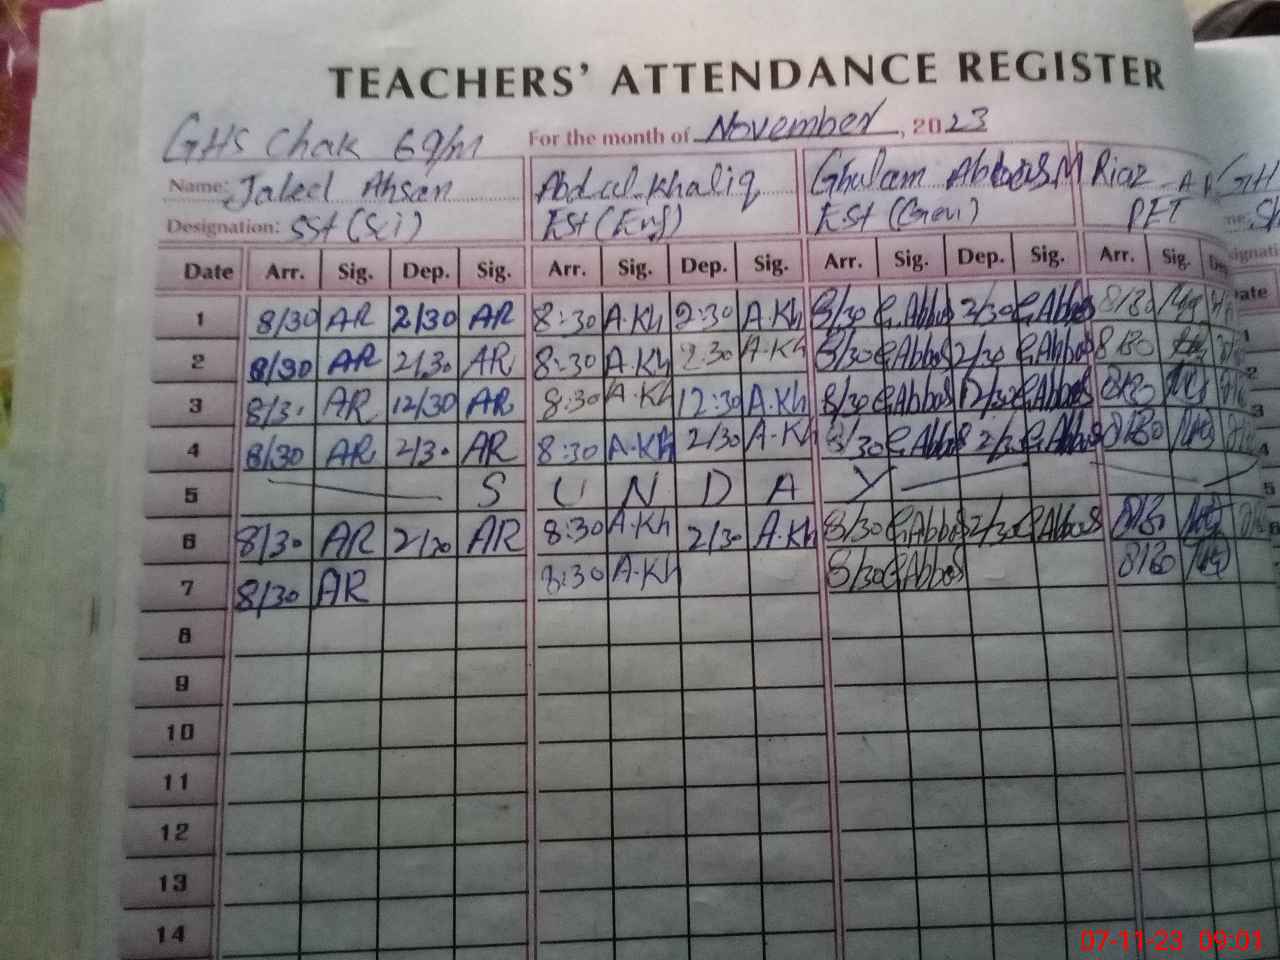 TEACHERS' ATTENDANCE REGISTER
GHS Chak 69/M For the month of November, 2023
Name: Jaleel Ahsan Abdul Khaliq Ghulam Abbas M Riaz
Designation: SST (Sci) EST (Eng) EST (Gen) PET
Date Arr. Sig. Dep. Sig. Arr. Sig. Dep. Sig. Arr. Sig. Dep. Sig. Arr. Sig.
1 8/30 AR 2/30 AR 8:30 A.Kh 2:30 A.Kh 8/30 G.Abbas 2/30 G.Abbas 8/30
2 8/30 AR 2/30 AR 8:30 A.Kh 2:30 A.Kh 8/30 G.Abbas 2/30 G.Abbas 8/30
3 8/30 AR 12/30 AR 8:30 A.Kh 12:30 A.Kh 8/30 G.Abbas 12/30 G.Abbas 8/30
4 8/30 AR 2/30 AR 8:30 A.Kh 2/30 A.Kh 8/30 G.Abbas 2/30 G.Abbas 8/30
5 S U N D A Y
6 8/30 AR 2/30 AR 8:30 A.Kh 2/30 A.Kh 8/30 G.Abbas 2/30 G.Abbas 8/30
7 8/30 AR 8:30 A.Kh 8/30 G.Abbas 8/30
8
9
10
11
12
13
14
07-11-23 09:01